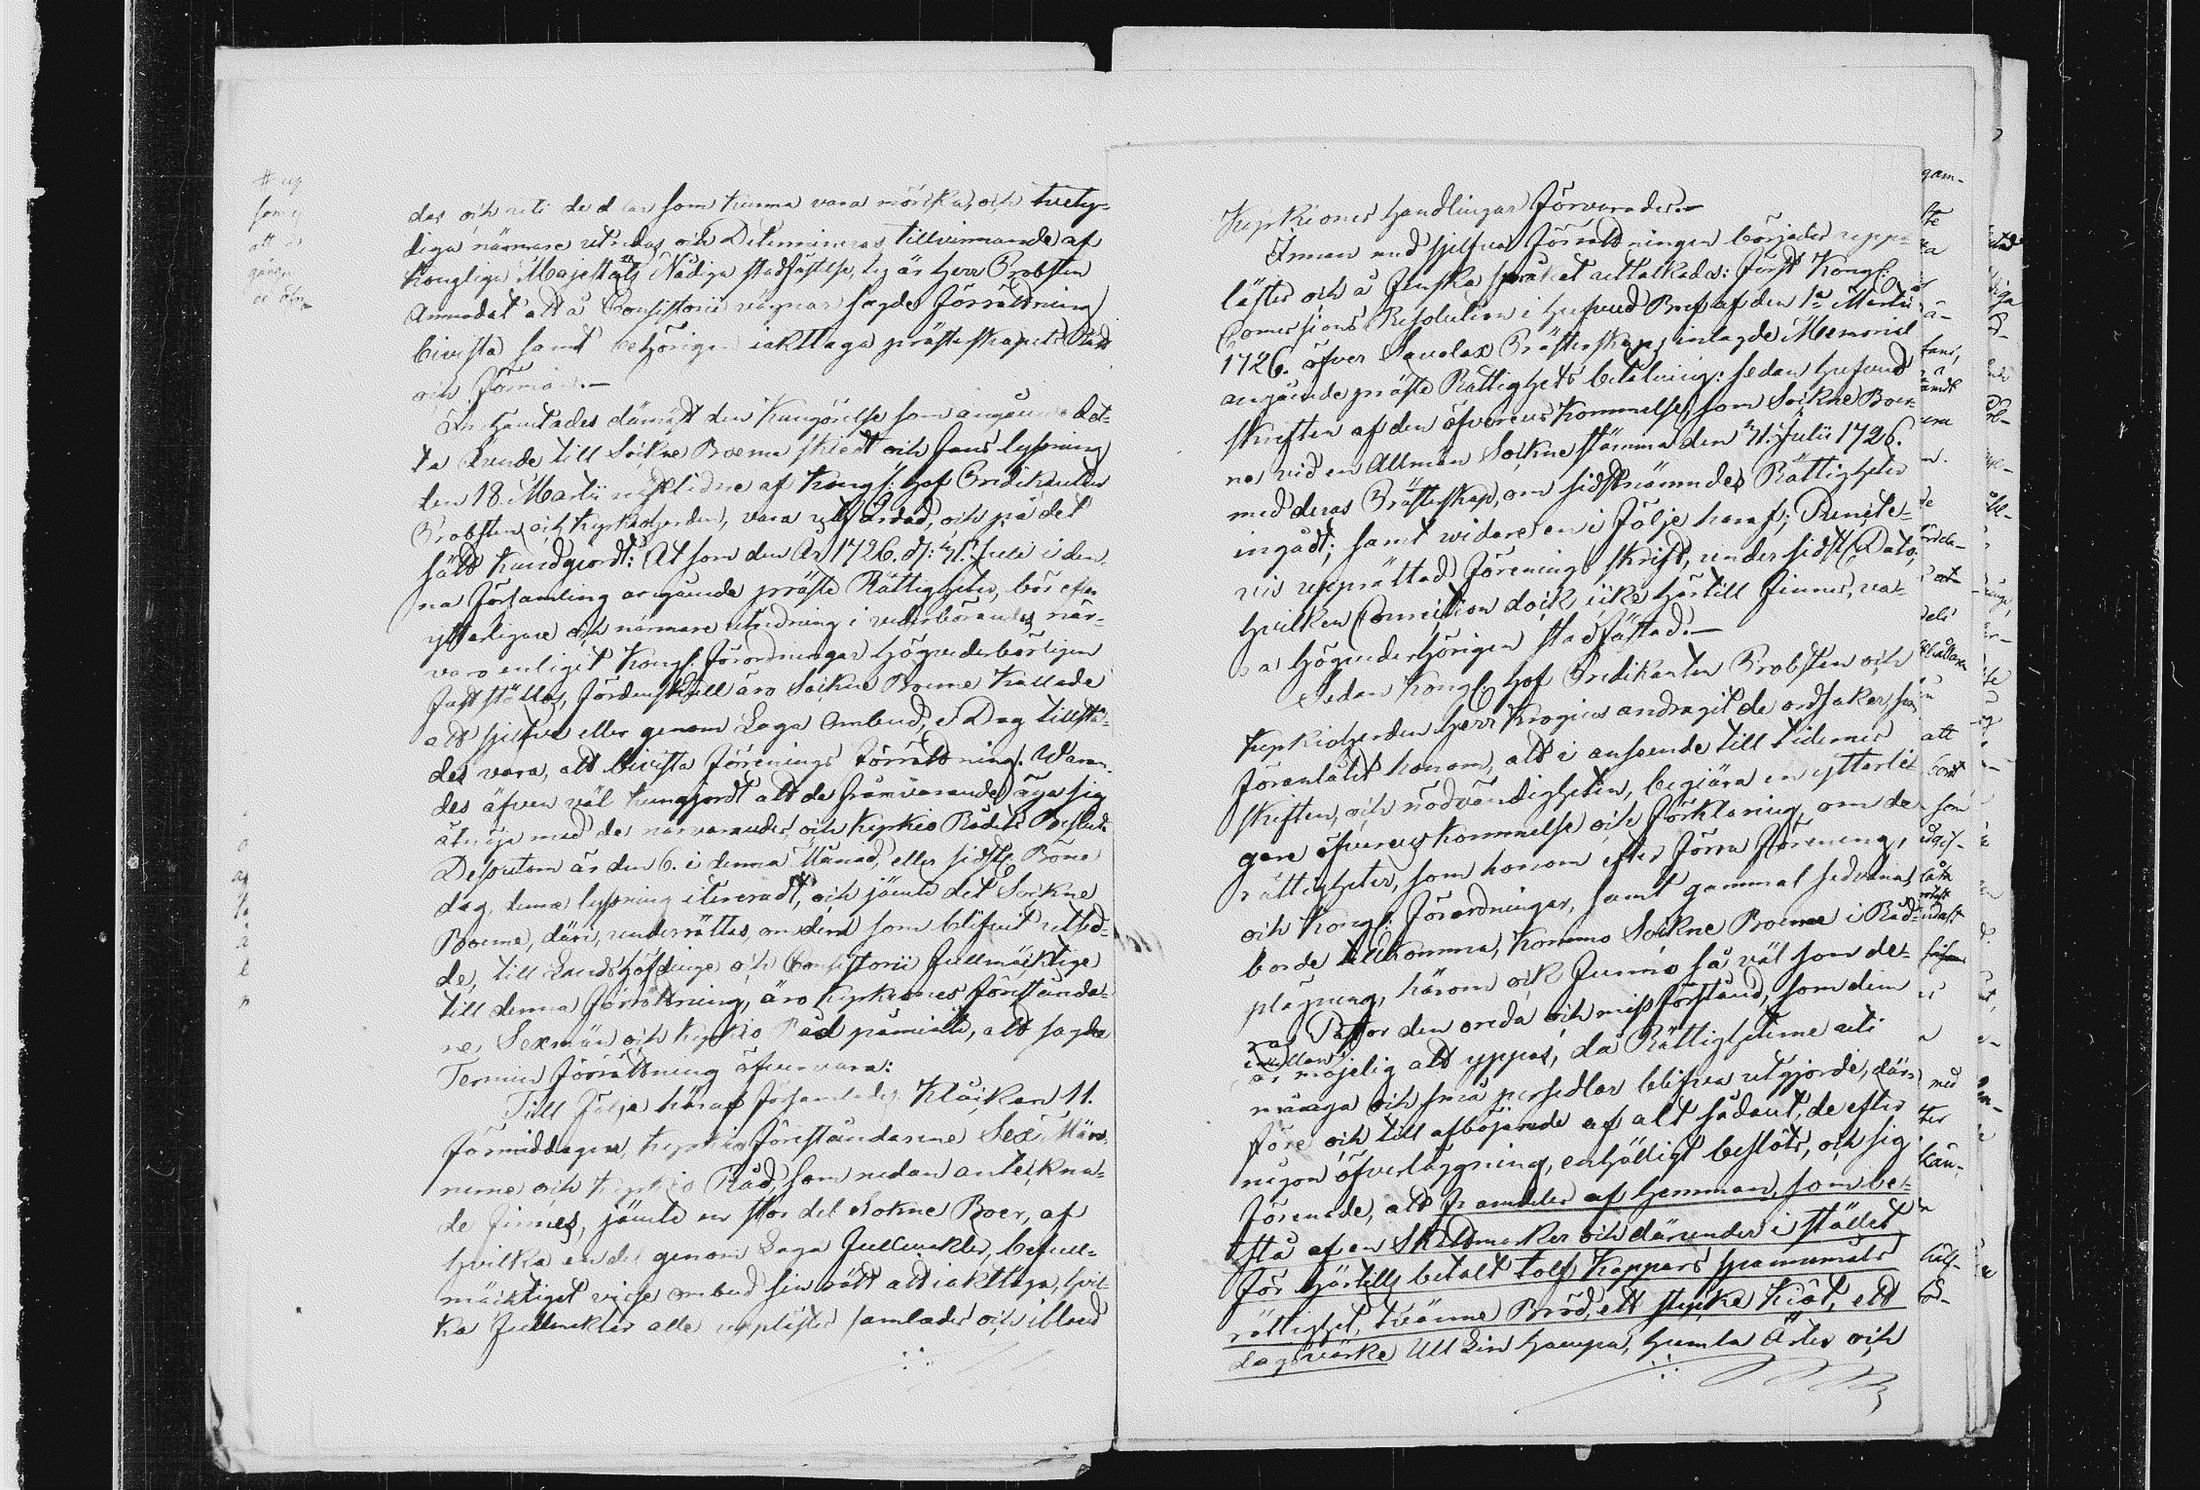 das och uti de delar som kunna vara mörka, och tvety-
diga närmare utredas och Determineras tillvinnande af
Kongliga Majestäts Nådiga stadfästelse, ty är Herr Probsten
Anmodat att å Consistorii vägnar sagde Förrättning
bivista samt behörigen iakttaga prästerskapets Rätt
och förmån.—
den Kungörelse som angående det-
ta Ärende till Sockne Boerna skiedt och hans lyssning
den 18. Martii näst!idne af Kongl: Hof Predikanten
Probsten och Kyrkioherden, vara och på det
sätt kundgiordt: At som den År 1726. d: 31. Julii i den-
na Församling angående präste Rättigheter, bör efter
ytterligare och närmare utredning i vederbörandes när-
varo enligit Kongl: Förordningar högvederbörligen
fastställas, fördenskull äro Sockne Boerne Kallade
att sjelfve eller genom Laga Ombud, i Dag tillstä-
des vara, att bivista Förenings Förrättning. Waran-
des äfven väl kungjordt att de frånvarande äga sig
åtnöja med de närvarandes och Kyrkio Rådets Beslut
Desutom är den 6. i denna Månad, eller sidstl: Böne
dag, denna lyssning itereradt, och jämte det Sockne
Boerne, däri, underrättas, om dem som blifvit utsed-
de, till Landshöfdinge och Consistorii Fullmäktige
till denna Förrättning, äro Kyrkiones Föreståndar
ne, Sexmän och Kyrkio Råd påminte, att sagde
Termin Förrättning öfvervara:
Till följe häraf församlades Klåckan 11.
förmiddagen, Kyrkio Föreståndarene Sex Män-
nerne och Kyrkio Råd, som nedan anteckna-
de finnes, jämte en stor del Sokne Boer, af
hvilka en del genom Laga Fullmakter, befull-
mäcktiget visse ombud sin rätt att iakttaga, hvil-
ka Fullmakter alle uppläster samlades och ibland
Kyrkiones Handlingar Förvarades.—
Innan med sjelfva Förrättningen börjades upp-
lästes och å Finska språket uttalkades: Först Kongl:
Comissions Resolution i Hufvud Bref af den 1ª Martii
1726. öfver Savolax Prästerskaps inlagde Memorial
angående präste Rättighets betalning: sedan Hufvud
skriften af den öfverenskommelse, som Sockne Boer-
ne vid en Allmän Sockne stämma den 31. Julii 1726.
med deras Prästerskap, om sidstnämndes Rättigheter
ingådt; samt widare en i Följe haraf;
vis upprättad Förenings skrift, under sidstl: Dato,
hvilken Convention dock icke härtill finnes, va-
ra högvederbörigen stadfästad.—
Sedan Kongl: Hof Predikanten Probsten och
Kyrkioherden Herr Krogius andragit de ordsaker, som
föranlåtit honom, att i anseende till tidernes
skiften, och nödvändigheten, begiära en ytterli-
gare öfverenskommelse och Förklaring, om de
rättigheter, som honom efter förra Förening,
och Kongl: Förordningar, samt gammal sedvana,
borde tillkomma, kommo Sockne Boerne i Råd-
plägning, härom och funno så väl som de-
ras Pastor den oreda och missförstånd, som dem
emellan
är möjelig att yppas, då Rättigheterne uti
många och små persedlar blifva utgjorde, där-
före och till afböjande af alt sådant, de efter
någon öfverläggning, enhälligt beslöts, och sig
förenade, att framdeles af hemman, som be-
stå af en Skattmarker och därunder i stället
för härtills betalt tolf Kappars spannemåls
rättighet, tvänne Bröd, ett stycke Kiöt, ett
dagsvärke Ull Lin Hampa, Humla Ärter och